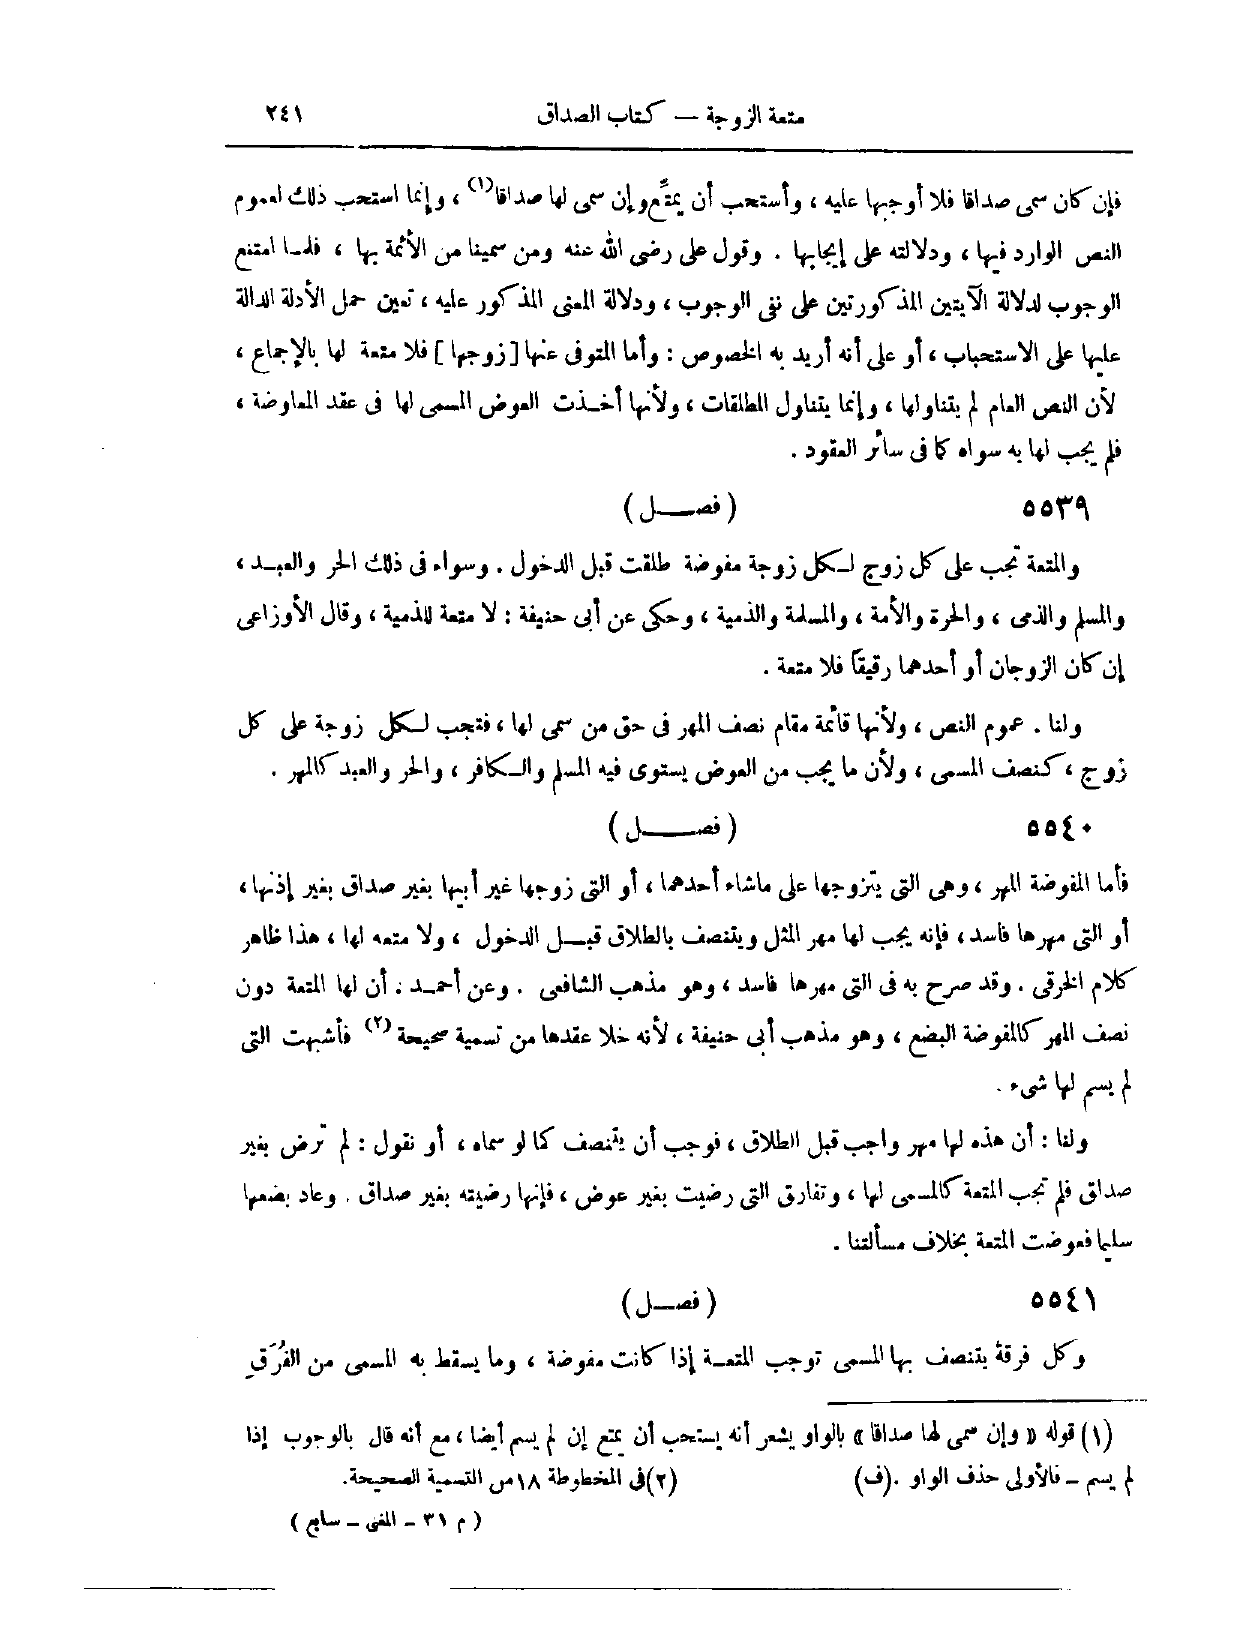 متعة الزوجة — كتاب الصداق ٢٤١
فإن كان سمى صداقا فلا أوجبها عليه ، وأستحب أن يمتِّع وإن سمى لها صداقا(١) ، وإنما استحب ذلك لعموم
النص الوارد فيها ، ودلالته على إيجابها . وقول على رضى الله عنه ومن سمينا من الأئمة بها ، فلمـا امتنع
الوجوب لدلالة الآيتين المذكورتين على نفى الوجوب ، ودلالة المعنى المذكور عليه ، تعين حمل الأدلة الدالة
عليها على الاستحباب ، أو على أنه أريد به الخصوص : وأما المتوفى عنها [ زوجها ] فلا متعة لها بالإجماع ،
لأن النص العام لم يتناولها ، وإنما يتناول المطلقات ، ولأنها أخـذت العوض المسمى لها فى عقد المعاوضة ،
فلم يجب لها به سواه كما فى سائر العقود .
٥٥٣٩ ( فصـــل )
والمتعة تجب على كل زوج لـكل زوجة مفوضة طلقت قبل الدخول . وسواء فى ذلك الحر والعبـد ،
والمسلم والذمى ، والحرة والأمة ، والمسلمة والذمية ، وحكى عن أبى حنيفة : لا متعة للذمية ، وقال الأوزاعى
إن كان الزوجان أو أحدهما رقيقاً فلا متعة .
ولنا . عموم النص ، ولأنها قائمة مقام نصف المهر فى حق من سمى لها ، فتجب لـكل زوجة على كل
زوج ، كنصف المسمى ، ولأن ما يجب من العوض يستوى فيه المسلم والـكافر ، والحر والعبد كالمهر .
٥٥٤٠ ( فصــــل )
فأما المفوضة المهر ، وهى التى يتزوجها على ماشاء أحدهما ، أو التى زوجها غير أبيها بغير صداق بغير إذنها ،
أو التى مهرها فاسد ، فإنه يجب لها مهر المثل ويتنصف بالطلاق قبـل الدخول ، ولا متعه لها ، هذا ظاهر
كلام الخرقى . وقد صرح به فى التى مهرها فاسد ، وهو مذهب الشافعى . وعن أحمـد : أن لها المتعة دون
نصف المهر كالمفوضة البضع ، وهو مذهب أبى حنيفة ، لأنه خلا عقدها من تسمية صحيحة (٢) فأشبهت التى
لم يسم لها شىء .
ولنا : أن هذه لها مهر واجب قبل الطلاق ، فوجب أن يتنصف كما لو سماه ، أو نقول : لم ترض بغير
صداق فلم تجب المتعة كالمسمى لها ، وتفارق التى رضيت بغير عوض ، فإنها رضيته بغير صداق . وعاد بضعها
سليما فعوضت المتعة بخلاف مسألتنا .
٥٥٤١ ( فصـل )
وكل فرقة يتنصف بها المسمى توجب المتعـة إذا كانت مفوضة ، وما يسقط به المسمى من الفُرَقِ
(١) قوله « وإن سمى لها صداقا » بالواو يشعر أنه يستحب أن يمتع إن لم يسم أيضا ، مع أنه قال بالوجوب إذا
لم يسم – فالأولى حذف الواو .(ف) (٢) فى المخطوطة ١٨ من التسمية الصحيحة.
( م ٣١ – المغنى – سابع )